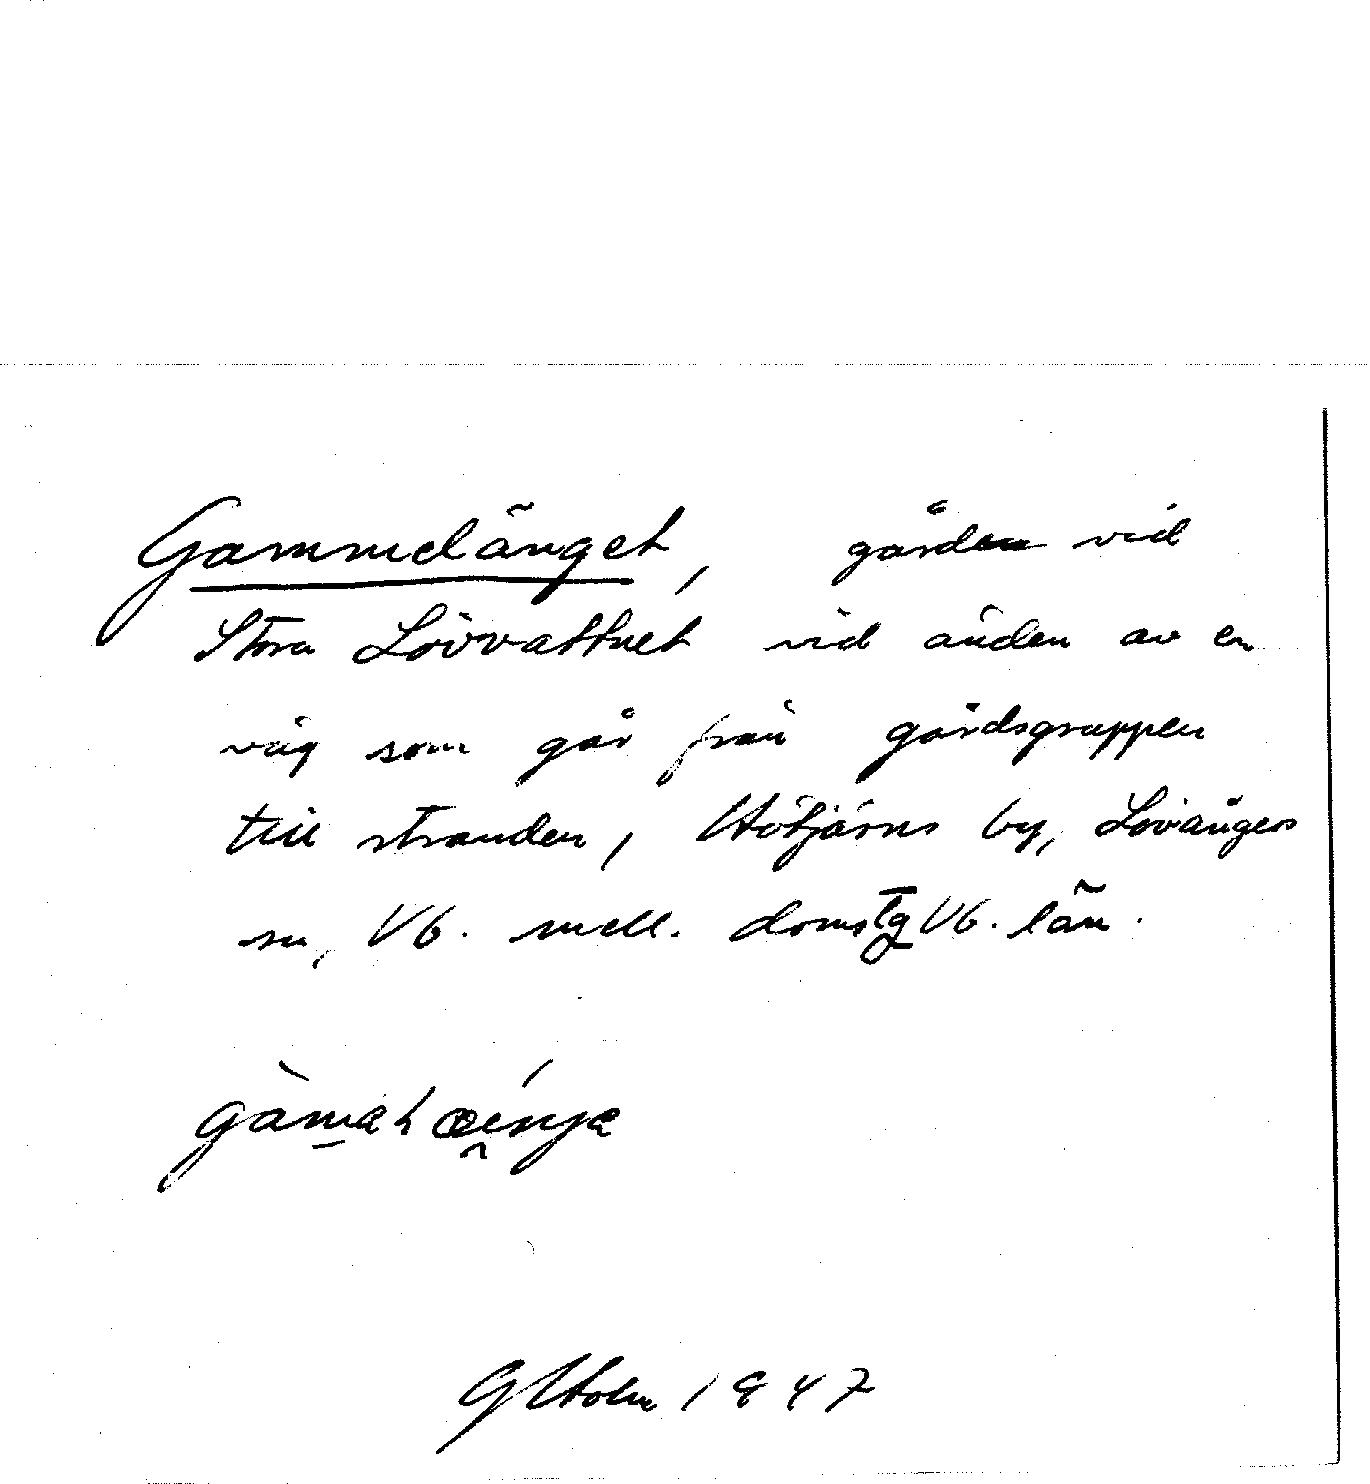 Gammelänget, gård vid
Stora Lövvattnet vid änden av en
väg som går från gårdsgruppen
till stranden, Hötjärns by, Lövångers
sn, Vb. mell. domstg Vb. län.
GHolm 1947